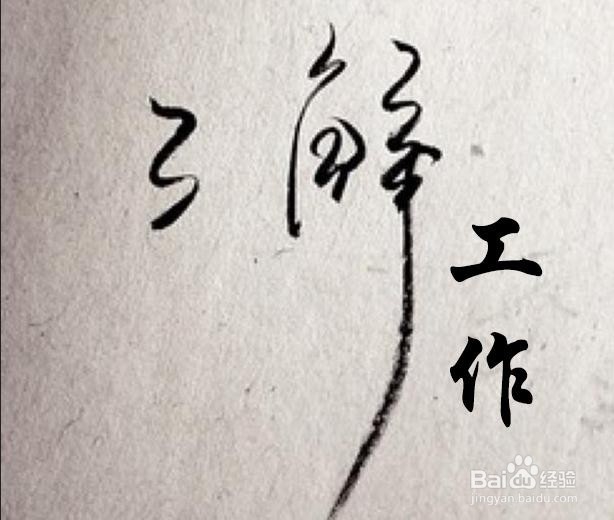 了解
工作
Baidu经验
jingyan.baidu.com